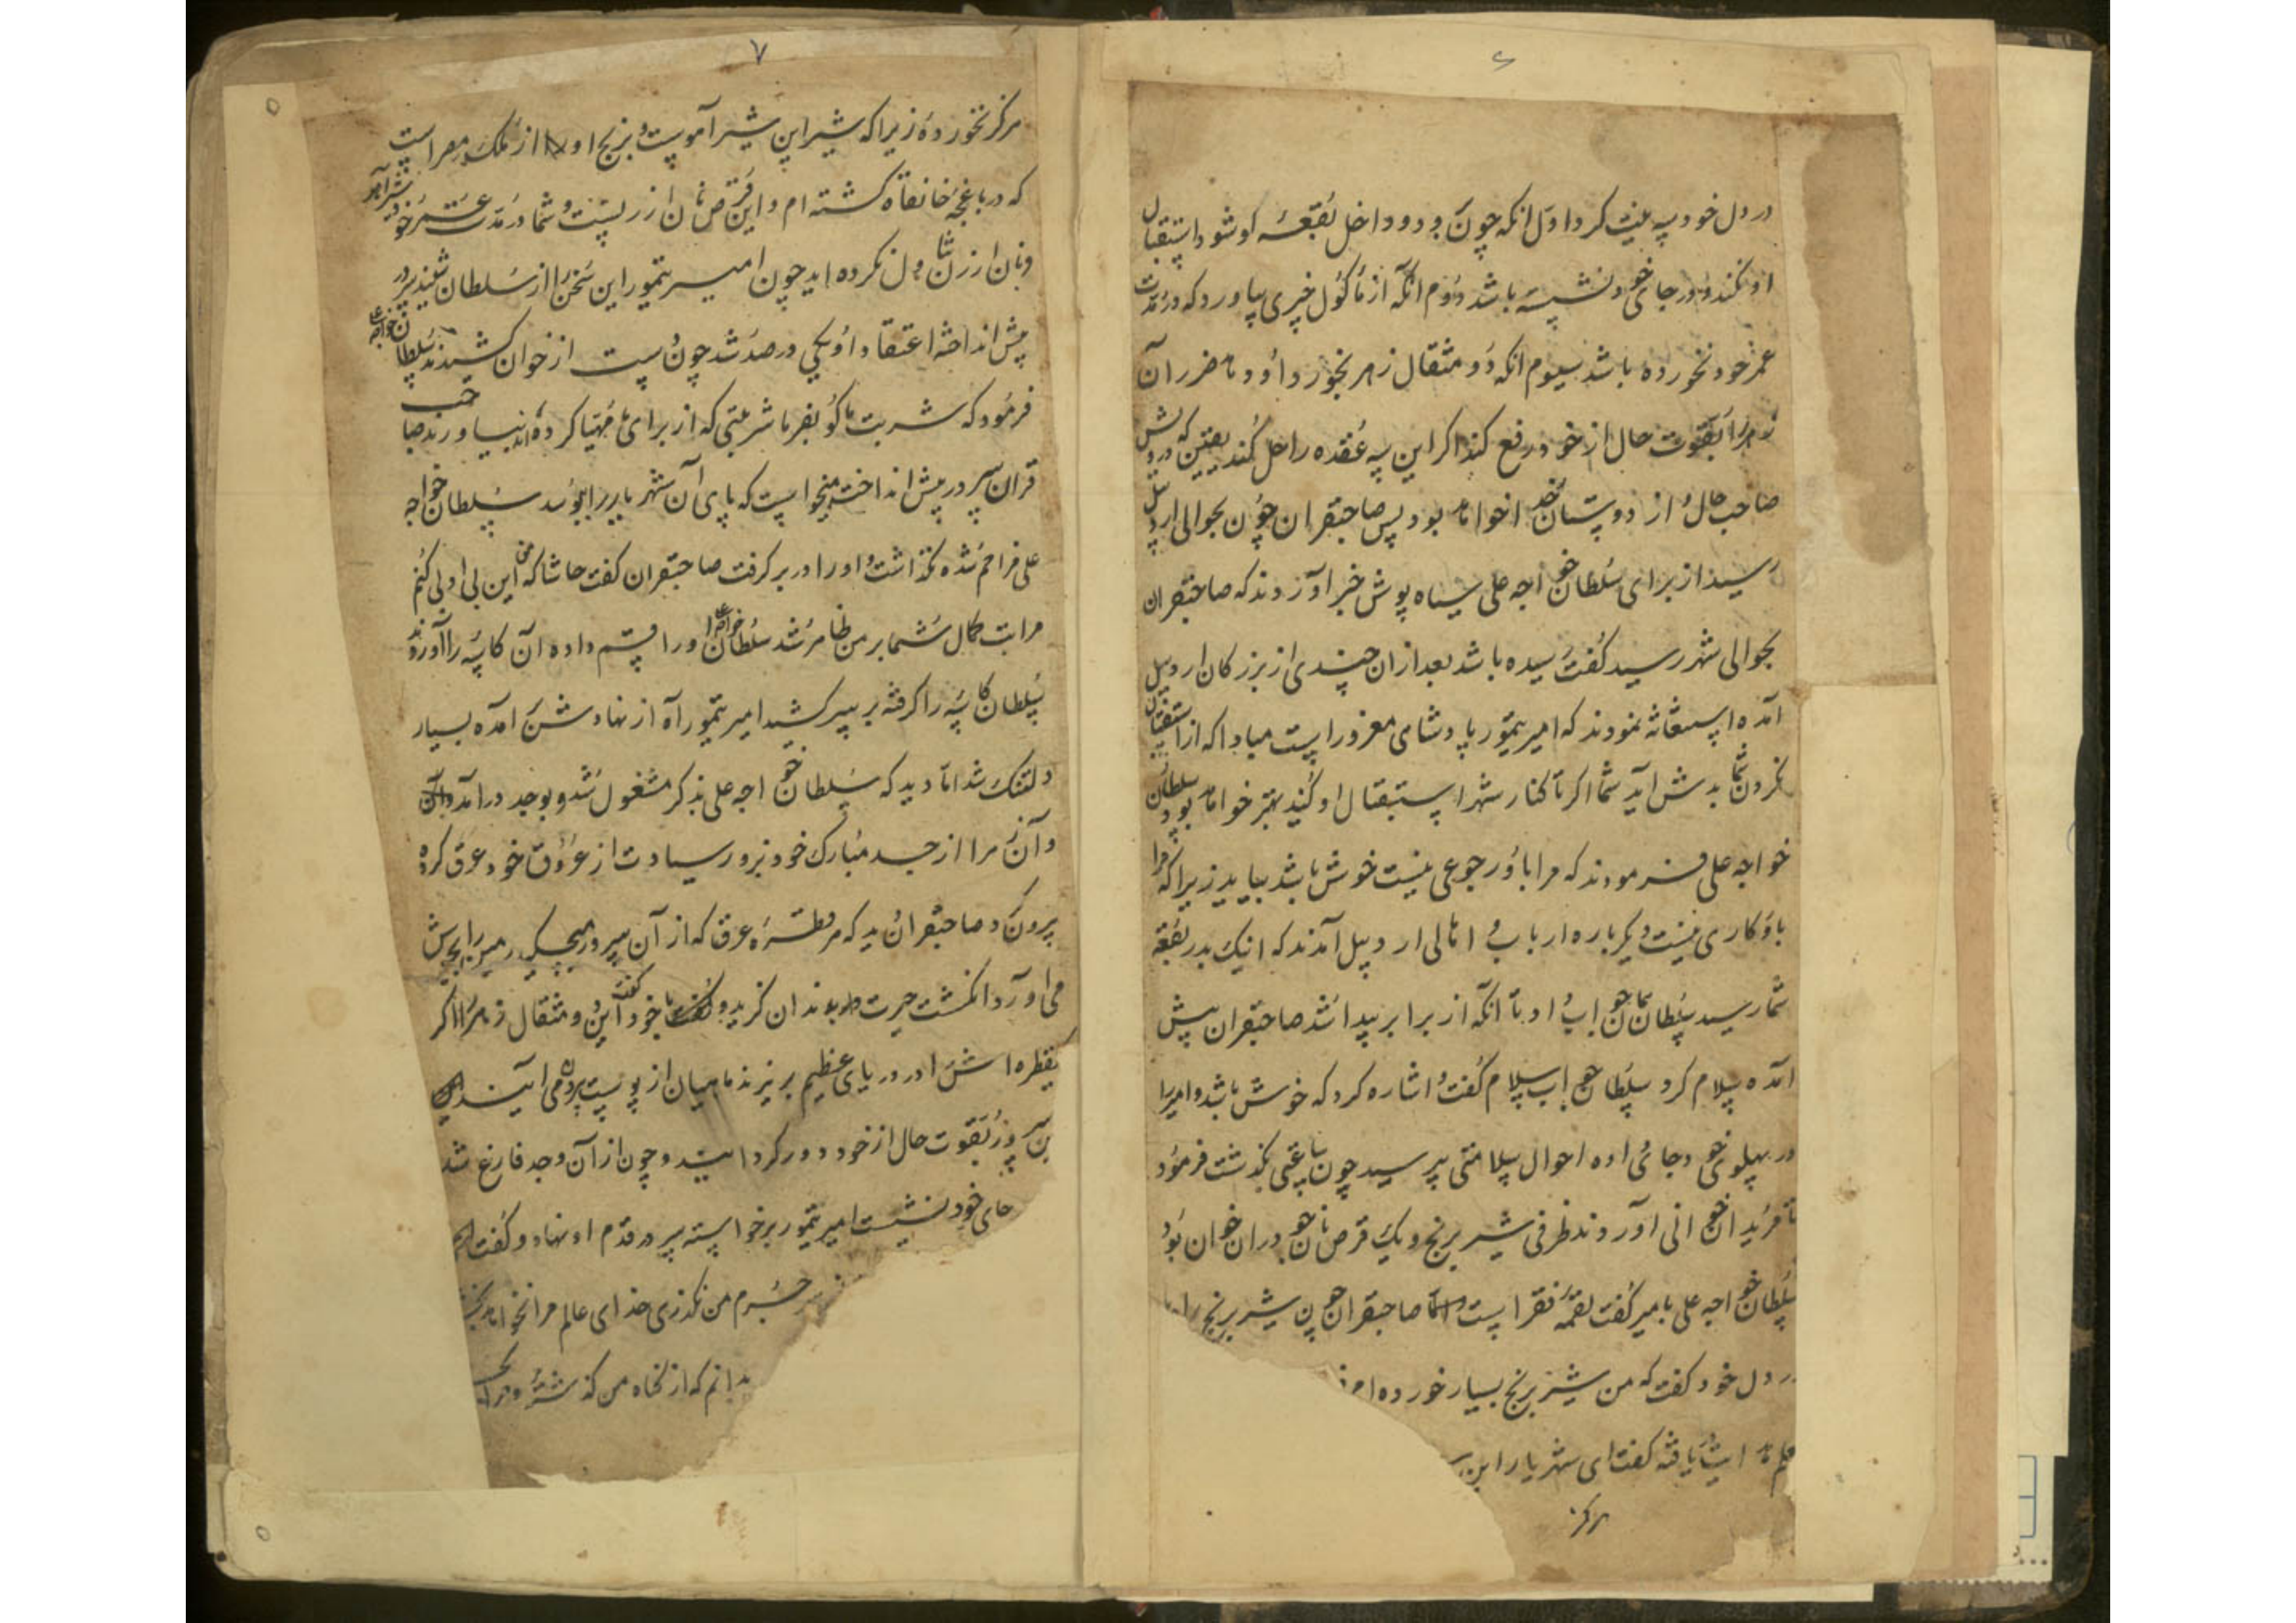 ۶
در دل خود سه نیت کرد اول انکه چون بدر و داخل بقعهٔ او شود استقبال
او نکند و در جای خود نشسته باشد دوم آنکه از ماکول چیزی بیاورد که در مدت
عمر خود نخورده باشد سیوم انکه دو مثقال زهر بخورد او و تا ضرر آن
زهر را بقوت حال از خود رفع کند اکر این سه عقده را حل کند یقین که درویش
صاحب حال و از دوستان خدا خواهد بود پس صاحبقران چون بحوالی اردبیل
رسید از برای سلطان خواجه علی سیاه پوش خبر آوردند که صاحبقران
بحوالی شهر رسید کفت رسیده باشد بعد از ان چندی از بزرکان اردبیل
آمده استغاثه نمودند که امیر تیمور پادشاهی مغرور است مبادا که از استقبال
نکردن شما بدش اید شما اکر تا کنار شهر استقبال او کنید بهتر خواهد بود سلطان
خواجه علی فرمودند که مرا با او رجوعی نیست خوش باشد بیاید زیرا که مرا
باو کاری نیست دیکر باره ارباب و اهالی اردبیل آمدند که اینک بدر بقعهٔ
شما رسید سلطان همان جواب داد تا آنکه از برابر پیدا شد صاحبقران پیش
آمده سلام کرد سلطان جواب سلام کفت و اشاره کرد که خوش باشد و امیر را
در پهلوی خود جای داده احوال سلامتی پرسید چون ساعتی بکذشت فرمود
تا مریدان خوانی آوردند ظرفی شیر برنج و یک قرص نان جو در ان خوان بود
سلطان خواجه علی با میر کفت لقمه فقرا است اما صاحبقران چون شیر برنج را
در دل خود کفت که من شیر برنج بسیار خورده ام
یافته کفت ای شهریار این
هرکز
۷
هرکز نخورده زیرا که شیر این شیر آهوست و برنج او از ملک مصر است
که در باغچهٔ خانقاه کشته ام و این قرص نان ارزنست و شما در مدت عمر خود شیر آهو
و نان ارزن تناول نکرده اید چون امیر تیمور این سخن از سلطان شنید سر در
پیش انداخته اعتقاد او یکی در صد شد چون دست از خوان کشیدند سلطان خواجه علی
فرمود که شربت ما کو بفرما شربتی که از برای ما مهیا کرده اند بیاورند صاحب
قران سر در پیش انداخته میخواست که پای آن شهریار را ببوسد سلطان خواجه
علی فراهم شده نکذاشت و او را در بر کرفت صاحبقران کفت حاشا که من این بی ادبی کنم
مراتب کمال شما بر من ظاهر شد سلطان خواجه علی او را قسم داده آن کاسه را آوردند
سلطان کاسه را کرفته بر سر کشید امیر تیمور آه از نهادش برآمده بسیار
دلتنک شد اما دید که سلطان خواجه علی بذکر مشغول شد و بوجد درآمد
و آن را از جسد مبارک خود بزور سیادت از عروق خود عرق کرده
بیرون کرد صاحبقران دید که هر قطرهٔ عرق که از آن سرور میچکید زمین را بجوش
می آورد انکشت حیرت بدندان کزید و با خود کفت این دو مثقال زهر را اکر
یقطره اش را در دریای عظیم بریزند ماهیان از پوست بدر می آیند
بزور قوت حال از خود دور کرده است و چون از آن وجد فارغ شد
جای خود نشست امیر تیمور برخواسته سر در قدم او نهاد و کفت
جرم من نکذری خدای عالم مرا نخواهد بخشید
بدانم که از کناه من کذشتهٔ